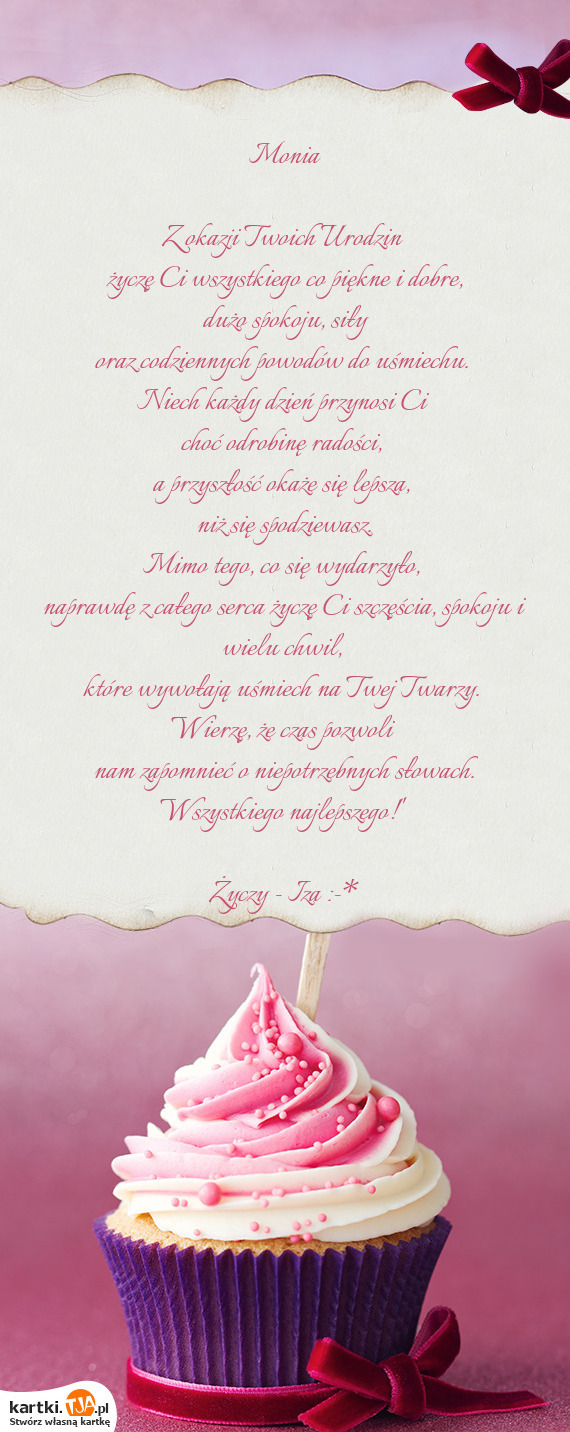 Monia
Z okazji Twoich Urodzin
życzę Ci wszystkiego co piękne i dobre,
dużo spokoju, siły
oraz codziennych powodów do uśmiechu.
Niech każdy dzień przynosi Ci
choć odrobinę radości,
a przyszłość okaże się lepsza,
niż się spodziewasz.
Mimo tego, co się wydarzyło,
naprawdę z całego serca życzę Ci szczęścia, spokoju i
wielu chwil,
które wywołają uśmiech na Twej Twarzy.
Wierzę, że czas pozwoli
nam zapomnieć o niepotrzebnych słowach.
Wszystkiego najlepszego!"
Życzy - Iza :-*
kartki.TJA.pl
Stwórz własną kartkę